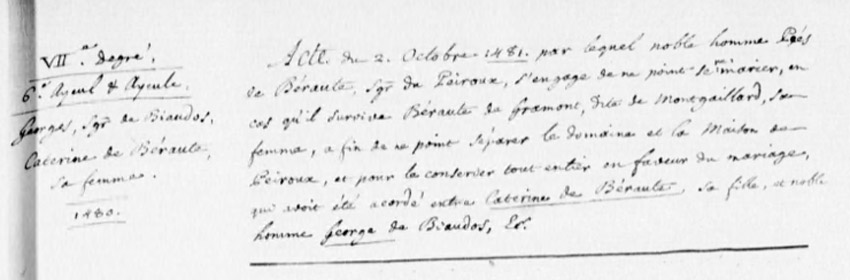 VII.me degré,
6.e Ayeul & Ayeule,
Georges, Sgr de Biaudos,
Caterine de Béraute,
sa femme.
1480.
Acte du 2. Octobre 1481. par lequel noble homme
de Béraute, Sgr du Peiroux, s'engage de ne point se remarier, en
cas qu'il survive Béraute de Gramont, dite de Montgaillard, sa
femme, afin de ne point séparer le domaine et la Maison de
Peiroux, et pour le conserver tout entier en faveur du mariage,
qui avoit été acordé entre Caterine de Béraute, sa fille, et noble
homme George de Biaudos, Er.